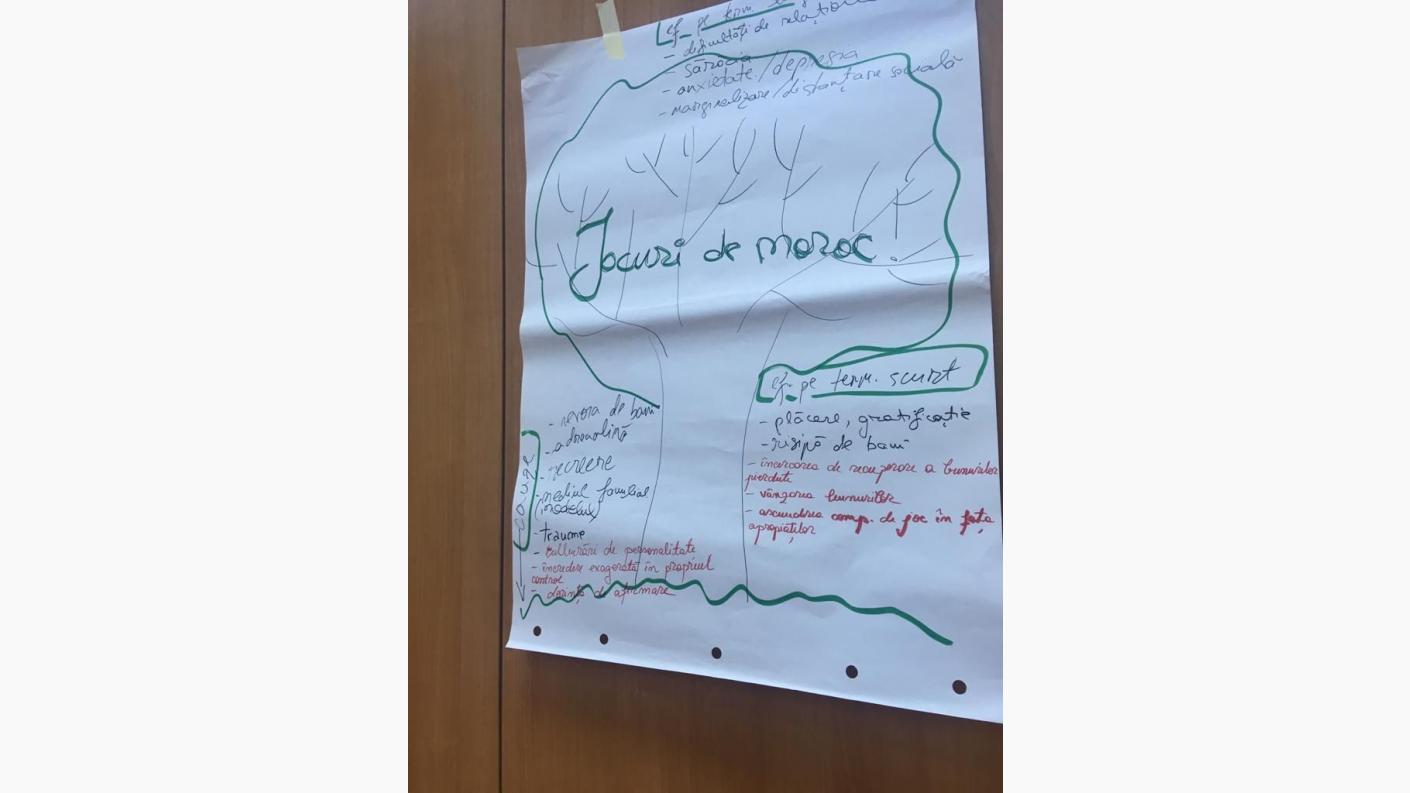 ef. pe term.
- dificultăți de relațion
- sărăcia
- anxietate / depresia
- marginalizare / distanțare socială
Jocuri de noroc
ef. pe term. scurt
- plăcere, gratificație
- risipă de bani
- încercarea de recuperare a bunurilor
pierdute
- vânzarea bunurilor
- ascunderea comp. de joc în fața
apropiaților
cauze
- nevoia de bani
- adrenalină
- recreere
- mediul familial
(modelul)
- traume
- tulburări de personalitate
- încredere exagerată în propriul
control
- dorința de afirmare